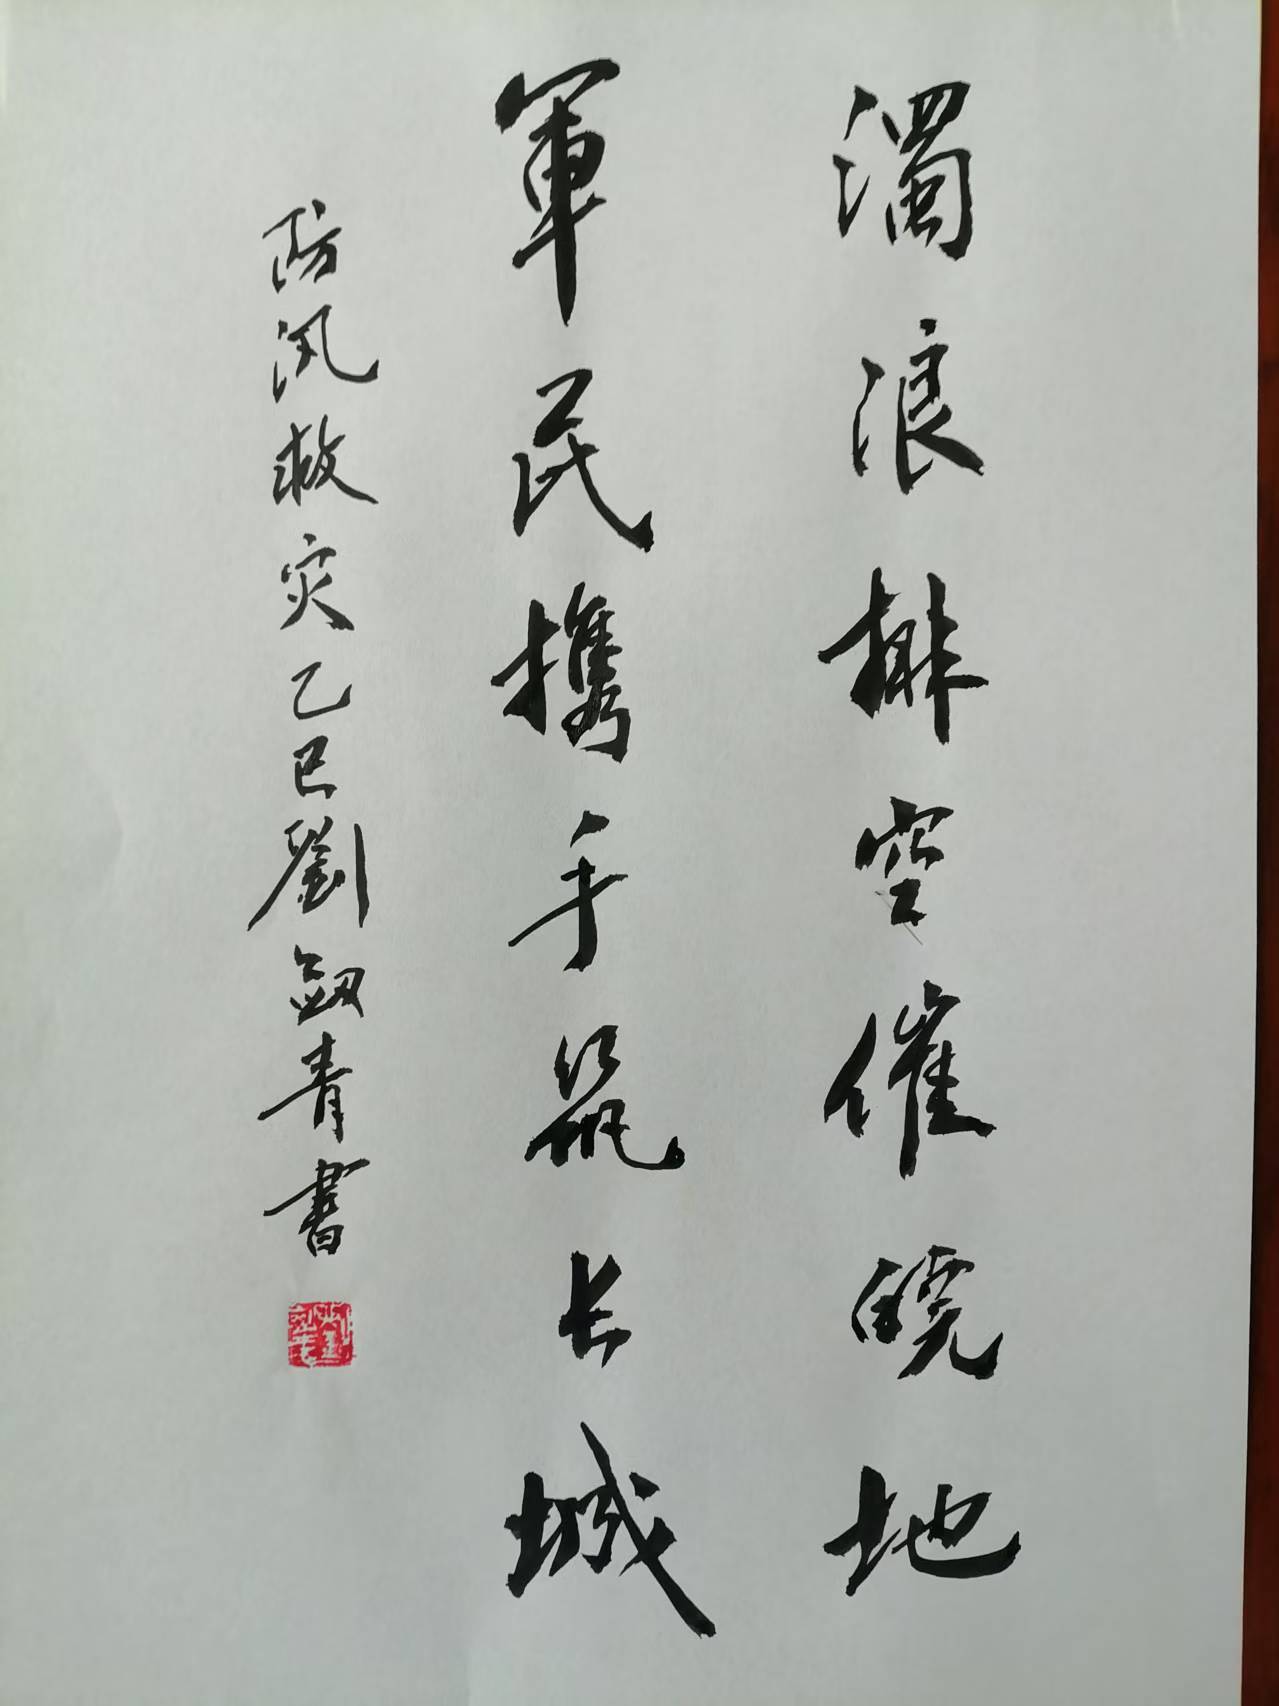 濁浪排空催皢地
軍民攜手筑长城
防汛救灾乙巳劉劔青書